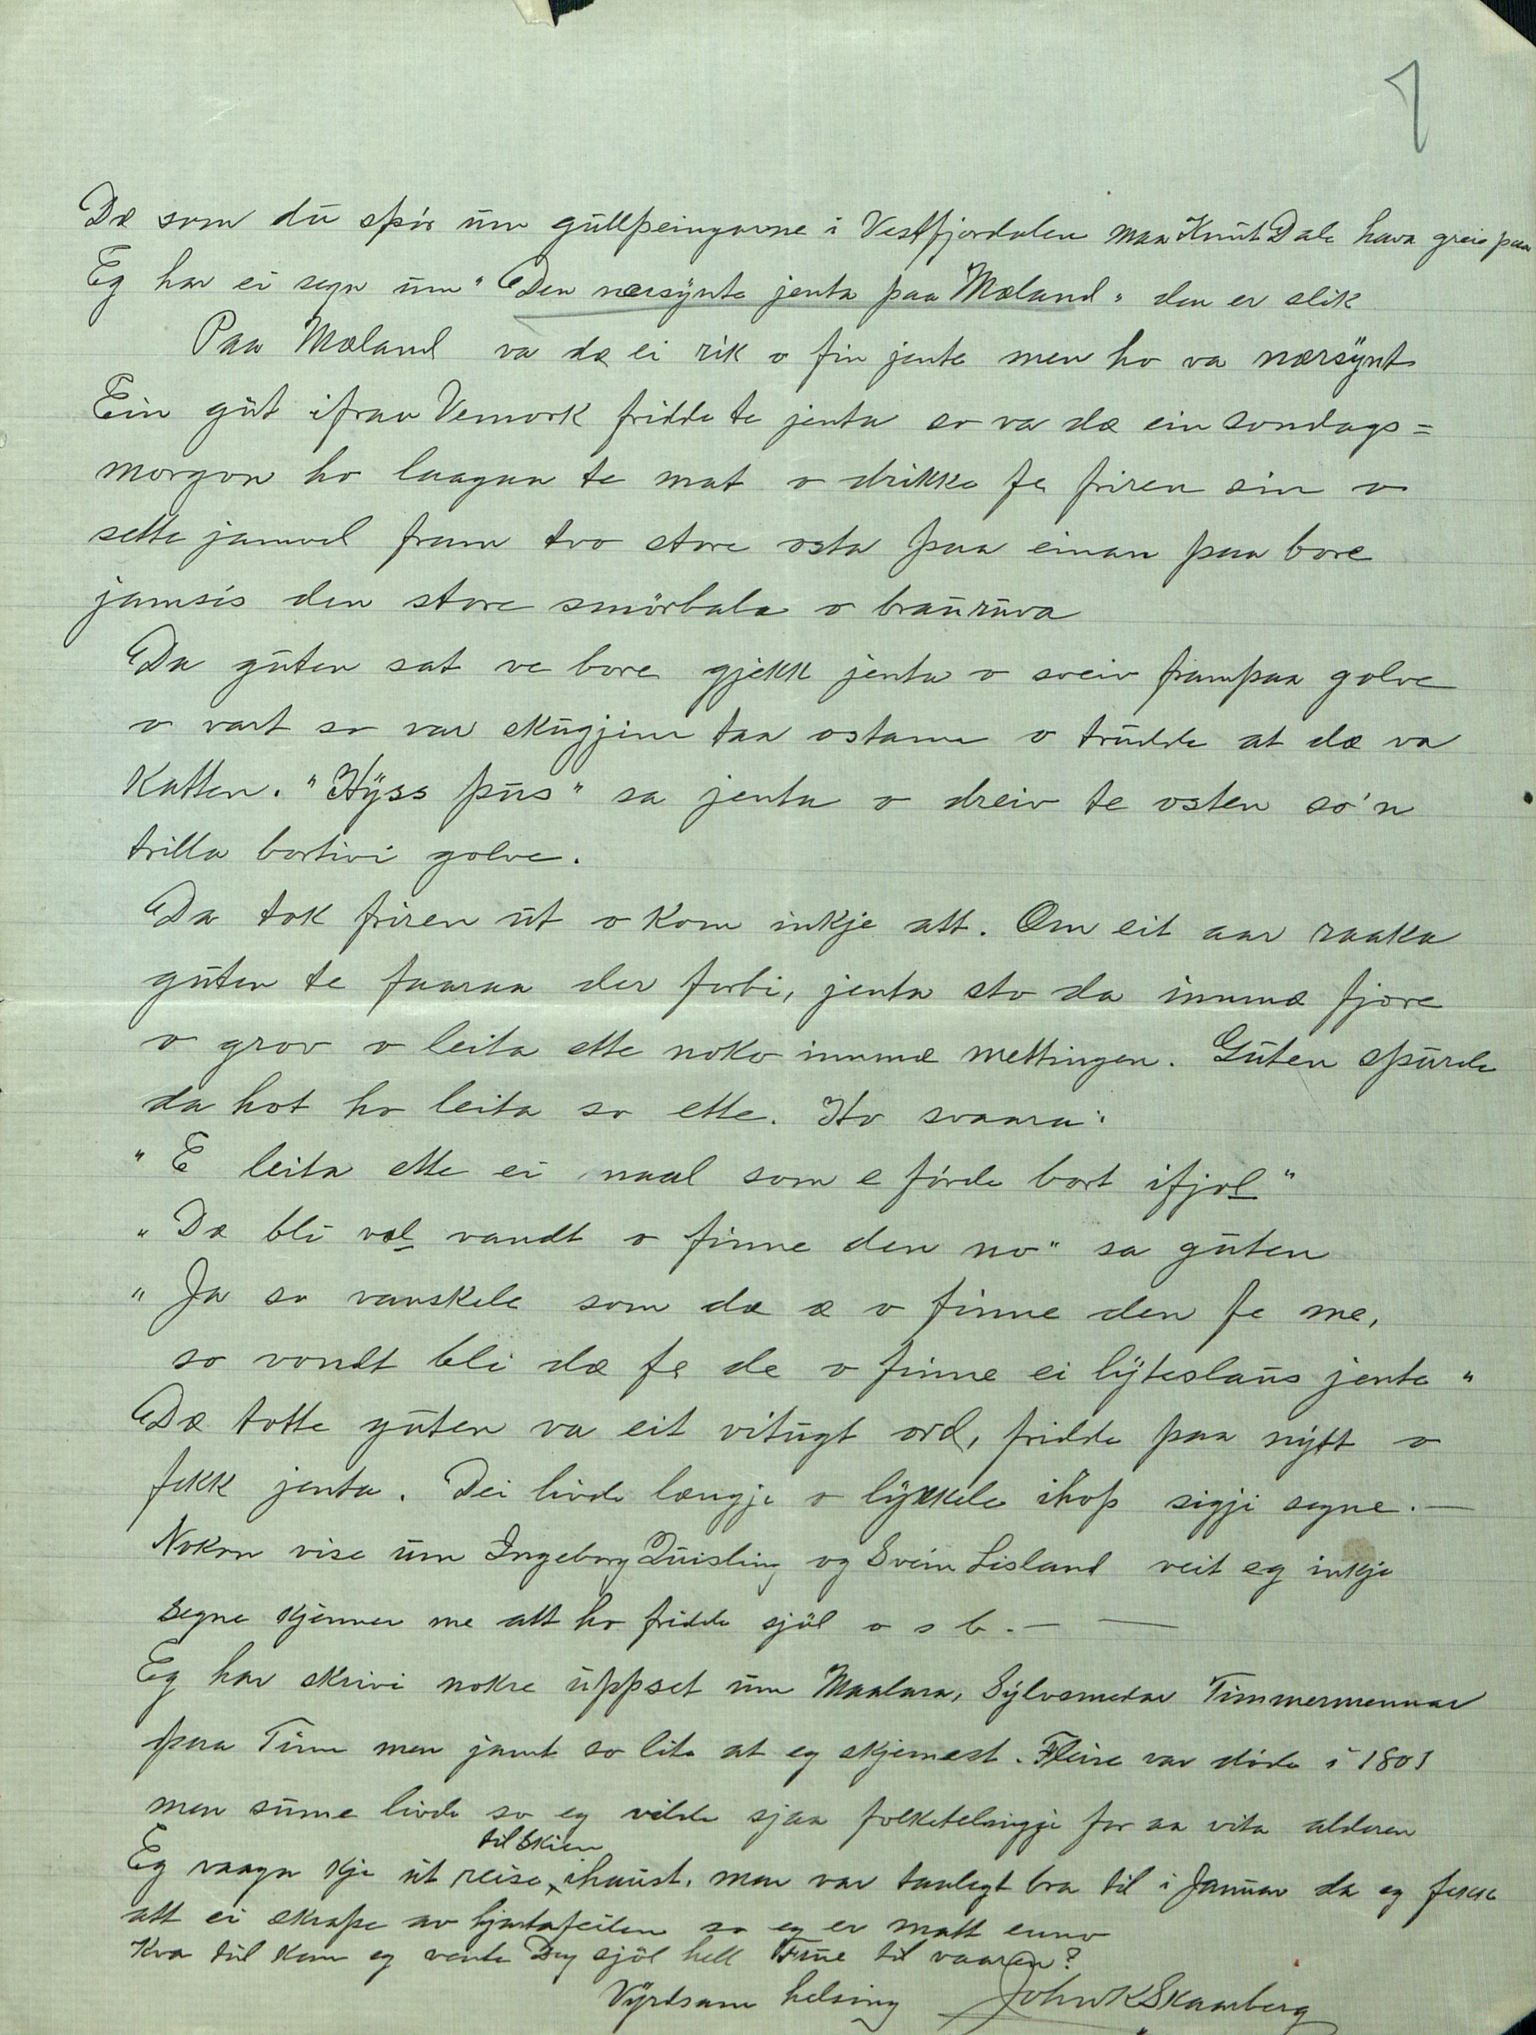 1
Dæ som du spör um gullpeingarne i Vestfjordalen maa Knut Dale hava greie paa
Eg har ei segn um "Den nærsynte jenta paa Mæland" den er slik
Paa Mæland va dæ ei rik o fin jente men ho va nærsynt
Ein gut ifraa Vemork fridde te jenta so va dæ ein sondags=
morgon ho laagaa te mat o drikke fe friren sin o
sette jamvel fram tvo store osta paa einan paa bore
jamsis den store smörbala o brauruva
Da guten sat ve bore gjekk jenta o sveiv frampaa golve
o vart so var skuggjin taa ostanne o trudde at dæ va
Katten. "Hyss pus" sa jenta o dreiv te osten so'n
trilla bortivi golve.
Da tok friren ut o kom inkje att. Om eit aar raaka
guten te faaraa der forbi, jenta sto da innmæ fjøre
o grov o leita ette noko innmæ mettingen. Guten spurde
da hot ho leita so ette. Ho svaara:
" E leita ette ei naal som e förde bort ifjol "
" Dæ bli væl vandt o finne den no" sa guten
" Ja so vanskele som dæ æ o finne den fe me,
so vondt bli dæ fe de o finne ei lyteslaus jente "
Dæ totte guten va eit vitugt ord, fridde paa nytt o
fekk jenta. Dei livde længje o lykkele ihop sigji segne. —
Nokon vise um Ingeborg Quisling og Svein Lisland veit eg inkje
segne kjenner me att ho fridde sjöl o s b. — —
Eg har skrivi nokre uppset um Maalara, Sylvsmedar Timmermennar
paa Tinn men jamt so lite at eg skjemest. Fleire var döde i 1801
men sume livde so eg vilde sjaa folketelingji for aa vita alderen
Eg vaaga kje ut reise til Skien ihaust, men var taalegt bra til i Januar da eg fekk
att ei skrape av hjartafeilen so eg er matt enno
Kva tid kan eg vente Deg sjöl hell Frue til vaaren?
Vyrdsam helsing John K Skaarberg